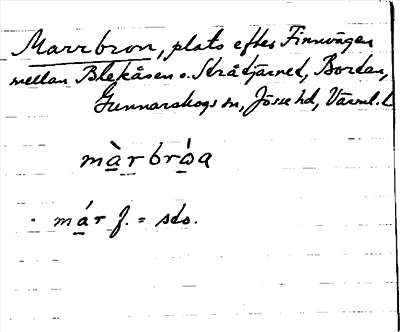 Marrbron, plats efter Finnvägen
mellan Blekåsen o. Stråtjärnet, Bordan,
Gunnarskogs sn, Jösse hd, Värml. l.
màrbróa
már f. = sds.